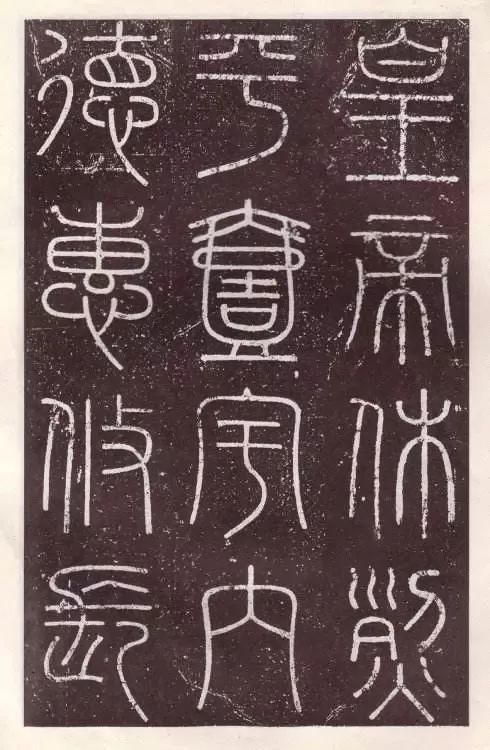 皇帝休烈
平壹宇內
德惠攸長